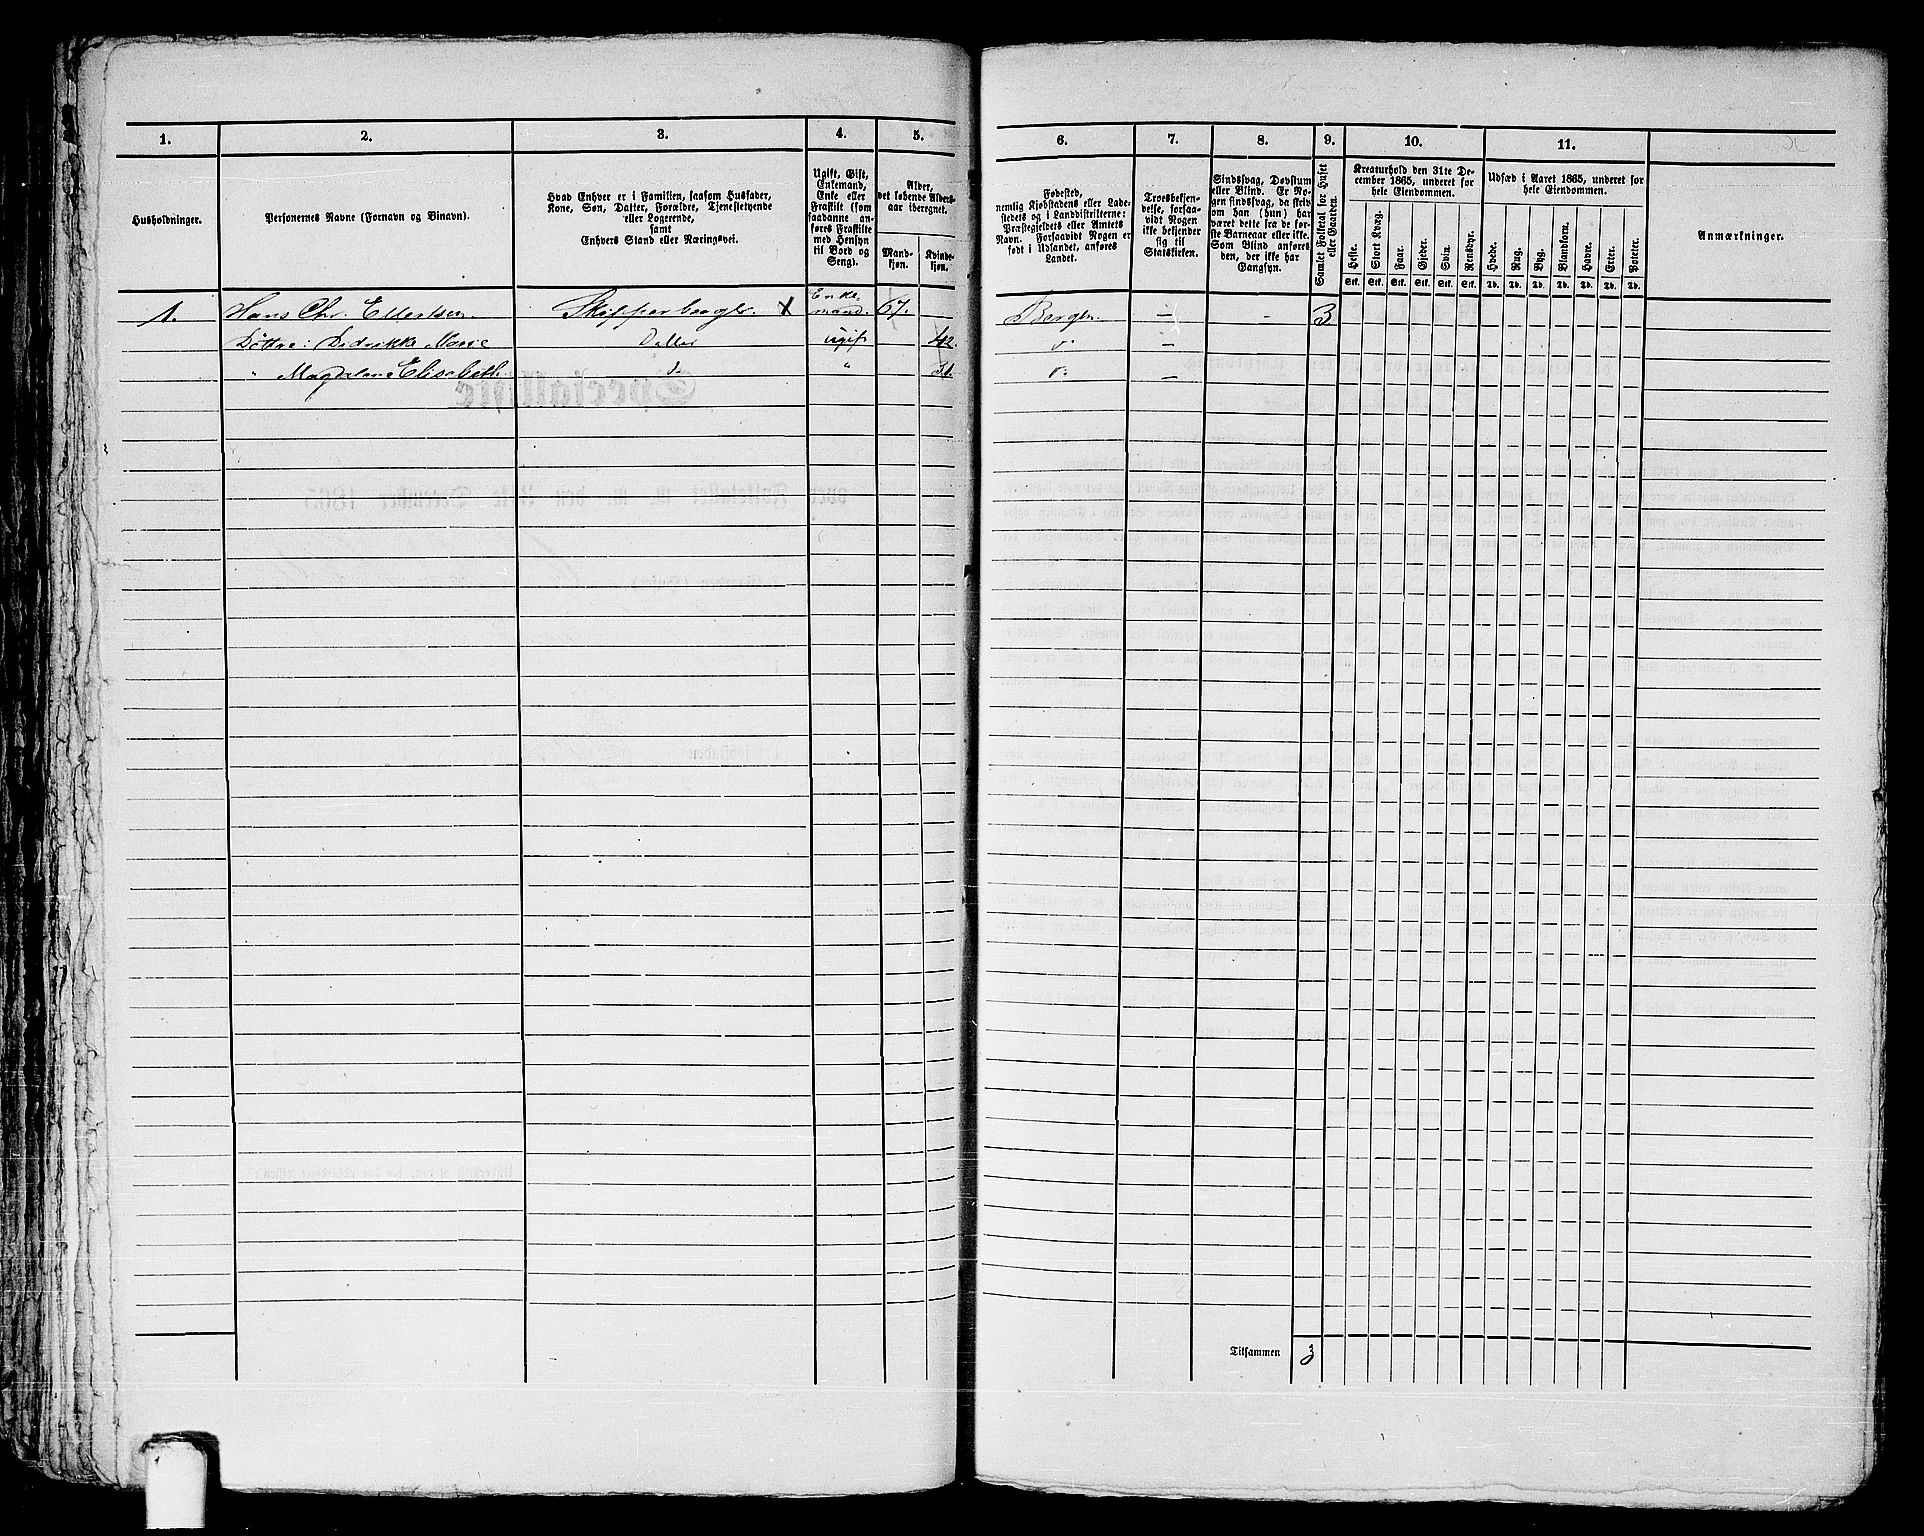 1. 2. 3. 4. 5. 6. 7. 8. 9. 10. 11.
Husholdninger.
Personernes Navne (Fornavn og Binavn).
Hvad Enhver er i Familien, saasom Husfader,
Kone, Søn, Datter, Forældre, Tjenestetyende
eller Logerende,
samt
Enhvers Stand eller Næringsvei.
Ugift, Gift,
Enkemand,
Enke eller
Fraskilt (som
saadanne an-
føres Fraskilte
med Hensyn
til Bord og
Seng).
Alder,
det løbende Alders-
aar iberegnet.
Mand-
kjøn.
Kvinde-
kjøn.
Fødested,
nemlig Kjøbstadens eller Lade-
stedets og i Landdistrikterne:
Præstegjeldets eller Amtets
Navn. Forsaavidt Nogen er
født i Udlandet, anføres
Landet.
Troesbekjen-
delse, forsaa-
vidt Nogen
ikke bekjender
sig til
Statskirken.
Sindssvag, Døvstum
eller Blind. Er No-
gen sindssvag, da skriv
om han (hun) har
været dette fra de før-
ste Barneaar eller ikke.
Som Blind anføres
den, der ikke har
Gangsyn.
Samlet Folketal for Huset
eller Gaarden.
Kreaturhold den 31te De-
cember 1865, underet for
hele Eiendommen.
Heste. Stort Kvæg. Faar. Gjeder. Svin. Rensdyr.
Stk. Stk. Stk. Stk. Stk. Stk.
Udsæd i Aaret 1865, underet for
hele Eiendommen.
Hvede. Rug. Byg. Blandkorn. Havre. Erter. Poteter.
Td. Td. Td. Td. Td. Td. Td.
Anmærkninger.
1. Hans Chr. Ellertsen. Skipperborger. X Enke-
mand. 67. Bergen. — - 3
Døttre: Didrikke Marie Datter ugift 42 —
" Magdalene Elisabeth. " —
Tilsammen 3